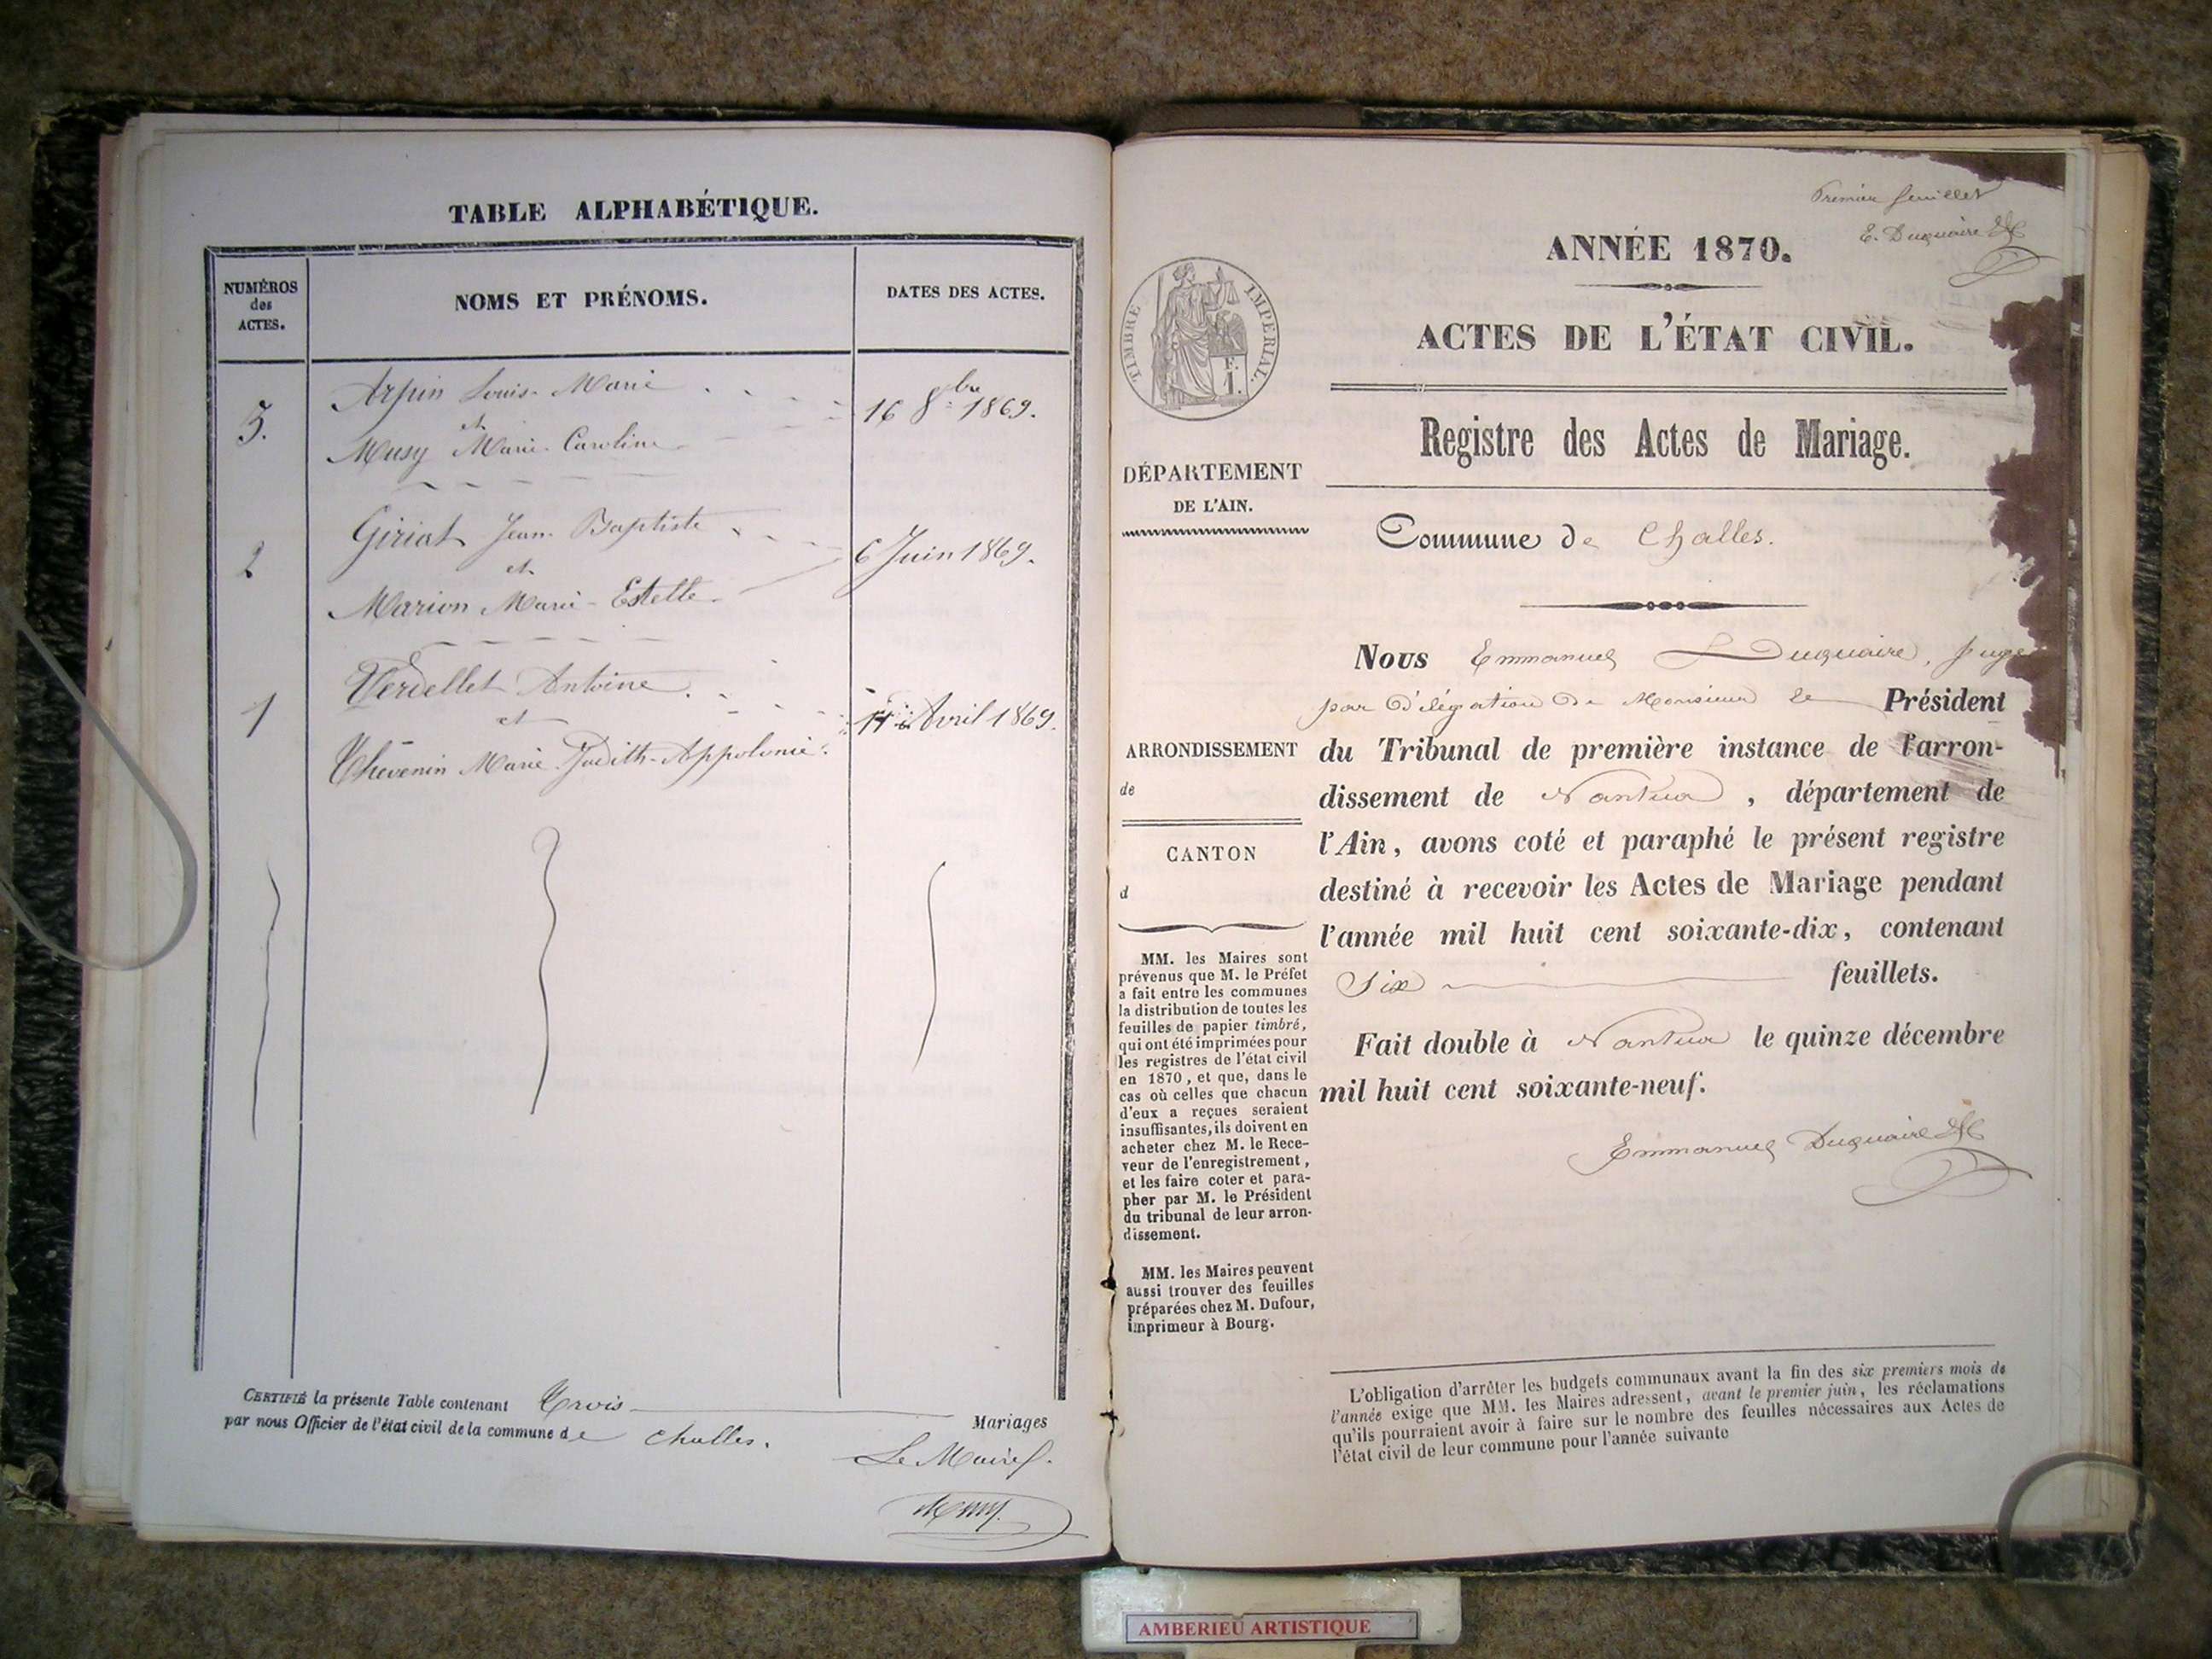 TABLE ALPHABÉTIQUE.
NUMÉROS
des
ACTES.
NOMS ET PRÉNOMS.
DATES DES ACTES.
3.
Arpin Louis-Marie
et
Musy Marie-Caroline
16 8bre 1869.
2
Giriat Jean-Baptiste
et
Marion Marie-Estelle
6 Juin 1869.
1
Verdellet Antoine
et
Thévenin Marie Judith-Appolonie
Avril 1869.
CERTIFIÉ la présente Table contenant Trois Mariages
par nous Officier de l'état civil de la commune de Challes.
Le Maire
Premier feuillet
E. Duquaire
ANNÉE 1870.
TIMBRE IMPERIAL.
ACTES DE L'ÉTAT CIVIL.
Registre des Actes de Mariage.
DÉPARTEMENT
DE L'AIN.
Commune de Challes.
Nous Emmanuel Duquaire, Juge
par délégation de Monsieur le Président
du Tribunal de première instance de l'arron-
dissement de Nantua, département de
l'Ain, avons coté et paraphé le présent registre
destiné à recevoir les Actes de Mariage pendant
l'année mil huit cent soixante-dix, contenant
Six feuillets.
Fait double à Nantua le quinze décembre
mil huit cent soixante-neuf.
Emmanuel Duquaire
ARRONDISSEMENT
de
CANTON
d
MM. les Maires sont
prévenus que M. le Préfet
a fait entre les communes
la distribution de toutes les
feuilles de papier timbré,
qui ont été imprimées pour
les registres de l'état civil
en 1870, et que, dans le
cas où celles que chacun
d'eux a reçues seraient
insuffisantes, ils doivent en
acheter chez M. le Rece-
veur de l'enregistrement,
et les faire coter et para-
pher par M. le Président
du tribunal de leur arron-
dissement.
MM. les Maires peuvent
aussi trouver des feuilles
préparées chez M. Dufour,
imprimeur à Bourg.
L'obligation d'arrêter les budgets communaux avant la fin des six premiers mois de
l'année exige que MM. les Maires adressent, avant le premier juin, les réclamations
qu'ils pourraient avoir à faire sur le nombre des feuilles nécessaires aux Actes de
l'état civil de leur commune pour l'année suivante
AMBERIEU ARTISTIQUE